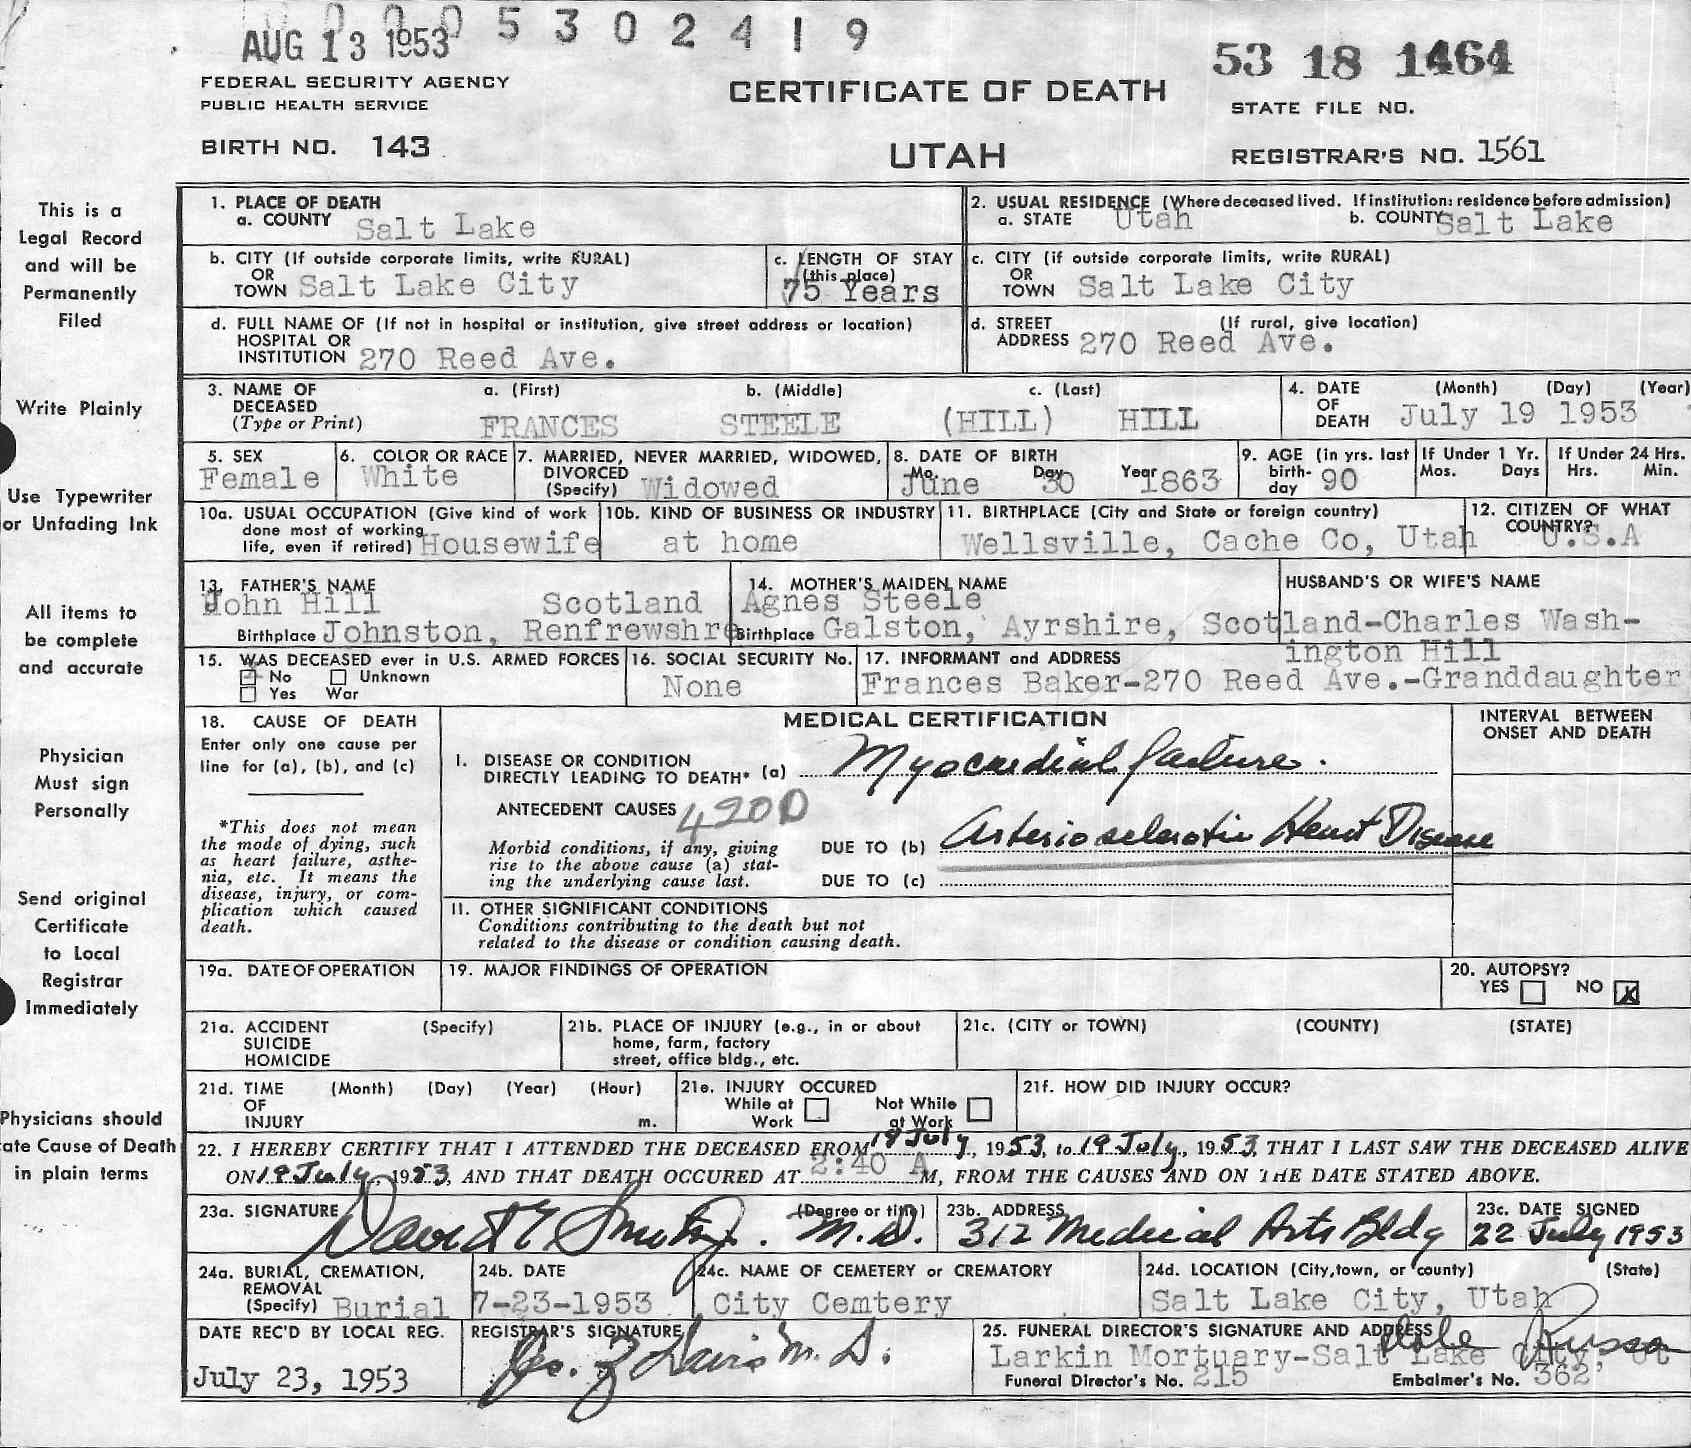 0005302419
AUG 13 1953
53 18 1464
FEDERAL SECURITY AGENCY
PUBLIC HEALTH SERVICE
CERTIFICATE OF DEATH
STATE FILE NO.
BIRTH NO. 143
UTAH
REGISTRAR'S NO. 1561
This is a
Legal Record
and will be
Permanently
Filed
Write Plainly
Use Typewriter
or Unfading Ink
All items to
be complete
and accurate
Physician
Must sign
Personally
Send original
Certificate
to Local
Registrar
Immediately
Physicians should
ate Cause of Death
in plain terms
1. PLACE OF DEATH
a. COUNTY Salt Lake
2. USUAL RESIDENCE (Where deceased lived. If institution: residence before admission)
a. STATE Utah b. COUNTY Salt Lake
b. CITY (If outside corporate limits, write RURAL)
OR
TOWN Salt Lake City
c. LENGTH OF STAY
(this place)
75 Years
c. CITY (if outside corporate limits, write RURAL)
OR
TOWN Salt Lake City
d. FULL NAME OF (If not in hospital or institution, give street address or location)
HOSPITAL OR
INSTITUTION 270 Reed Ave.
d. STREET (If rural, give location)
ADDRESS 270 Reed Ave.
3. NAME OF a. (First) b. (Middle) c. (Last)
DECEASED
(Type or Print) FRANCES STEELE (HILL) HILL
4. DATE (Month) (Day) (Year)
OF
DEATH July 19 1953
5. SEX
Female
6. COLOR OR RACE
White
7. MARRIED, NEVER MARRIED, WIDOWED,
DIVORCED
(Specify) Widowed
8. DATE OF BIRTH
Mo. Day Year
June 30 1863
9. AGE (in yrs. last
birth-
day 90
If Under 1 Yr.
Mos. Days
If Under 24 Hrs.
Hrs. Min.
10a. USUAL OCCUPATION (Give kind of work
done most of working
life, even if retired) Housewife
10b. KIND OF BUSINESS OR INDUSTRY
at home
11. BIRTHPLACE (City and State or foreign country)
Wellsville, Cache Co, Utah
12. CITIZEN OF WHAT
COUNTRY?
U.S.A
13. FATHER'S NAME
John Hill Scotland
Birthplace Johnston, Renfrewshre
14. MOTHER'S MAIDEN NAME
Agnes Steele
Birthplace Galston, Ayrshire, Scotland-Charles Wash-
HUSBAND'S OR WIFE'S NAME
ington Hill
15. WAS DECEASED ever in U.S. ARMED FORCES
No Unknown
Yes War
16. SOCIAL SECURITY No.
None
17. INFORMANT and ADDRESS
Frances Baker-270 Reed Ave.-Granddaughter
18. CAUSE OF DEATH
Enter only one cause per
line for (a), (b), and (c)
*This does not mean
the mode of dying, such
as heart failure, asthe-
nia, etc. It means the
disease, injury, or com-
plication which caused
death.
MEDICAL CERTIFICATION
INTERVAL BETWEEN
ONSET AND DEATH
I. DISEASE OR CONDITION
DIRECTLY LEADING TO DEATH* (a) Myocardial failure.
ANTECEDENT CAUSES 420 0
Morbid conditions, if any, giving
rise to the above cause (a) stat-
ing the underlying cause last.
DUE TO (b) Arteriosclerotic Heart Disease
DUE TO (c)
II. OTHER SIGNIFICANT CONDITIONS
Conditions contributing to the death but not
related to the disease or condition causing death.
19a. DATE OF OPERATION
19. MAJOR FINDINGS OF OPERATION
20. AUTOPSY?
YES NO X
21a. ACCIDENT (Specify)
SUICIDE
HOMICIDE
21b. PLACE OF INJURY (e.g., in or about
home, farm, factory
street, office bldg., etc.
21c. (CITY or TOWN) (COUNTY) (STATE)
21d. TIME (Month) (Day) (Year) (Hour)
OF
INJURY m.
21e. INJURY OCCURED
While at Not While
Work at Work
21f. HOW DID INJURY OCCUR?
22. I HEREBY CERTIFY THAT I ATTENDED THE DECEASED FROM 19 July, 1953, to 19 July, 1953, THAT I LAST SAW THE DECEASED ALIVE
ON 19 July, 1953, AND THAT DEATH OCCURED AT 2:40 A M, FROM THE CAUSES AND ON THE DATE STATED ABOVE.
23a. SIGNATURE (Degree or title)
David E Smith M.D.
23b. ADDRESS
312 Medical Arts Bldg
23c. DATE SIGNED
22 July 1953
24a. BURIAL, CREMATION,
REMOVAL
(Specify) Burial
24b. DATE
7-23-1953
24c. NAME OF CEMETERY or CREMATORY
City Cemtery
24d. LOCATION (City, town, or county) (State)
Salt Lake City, Utah
DATE REC'D BY LOCAL REG.
July 23, 1953
REGISTRAR'S SIGNATURE
Geo. Z Davis M.D.
25. FUNERAL DIRECTOR'S SIGNATURE AND ADDRESS
Larkin Mortuary-Salt Lake City, Ut
Funeral Director's No. 215 Embalmer's No. 362